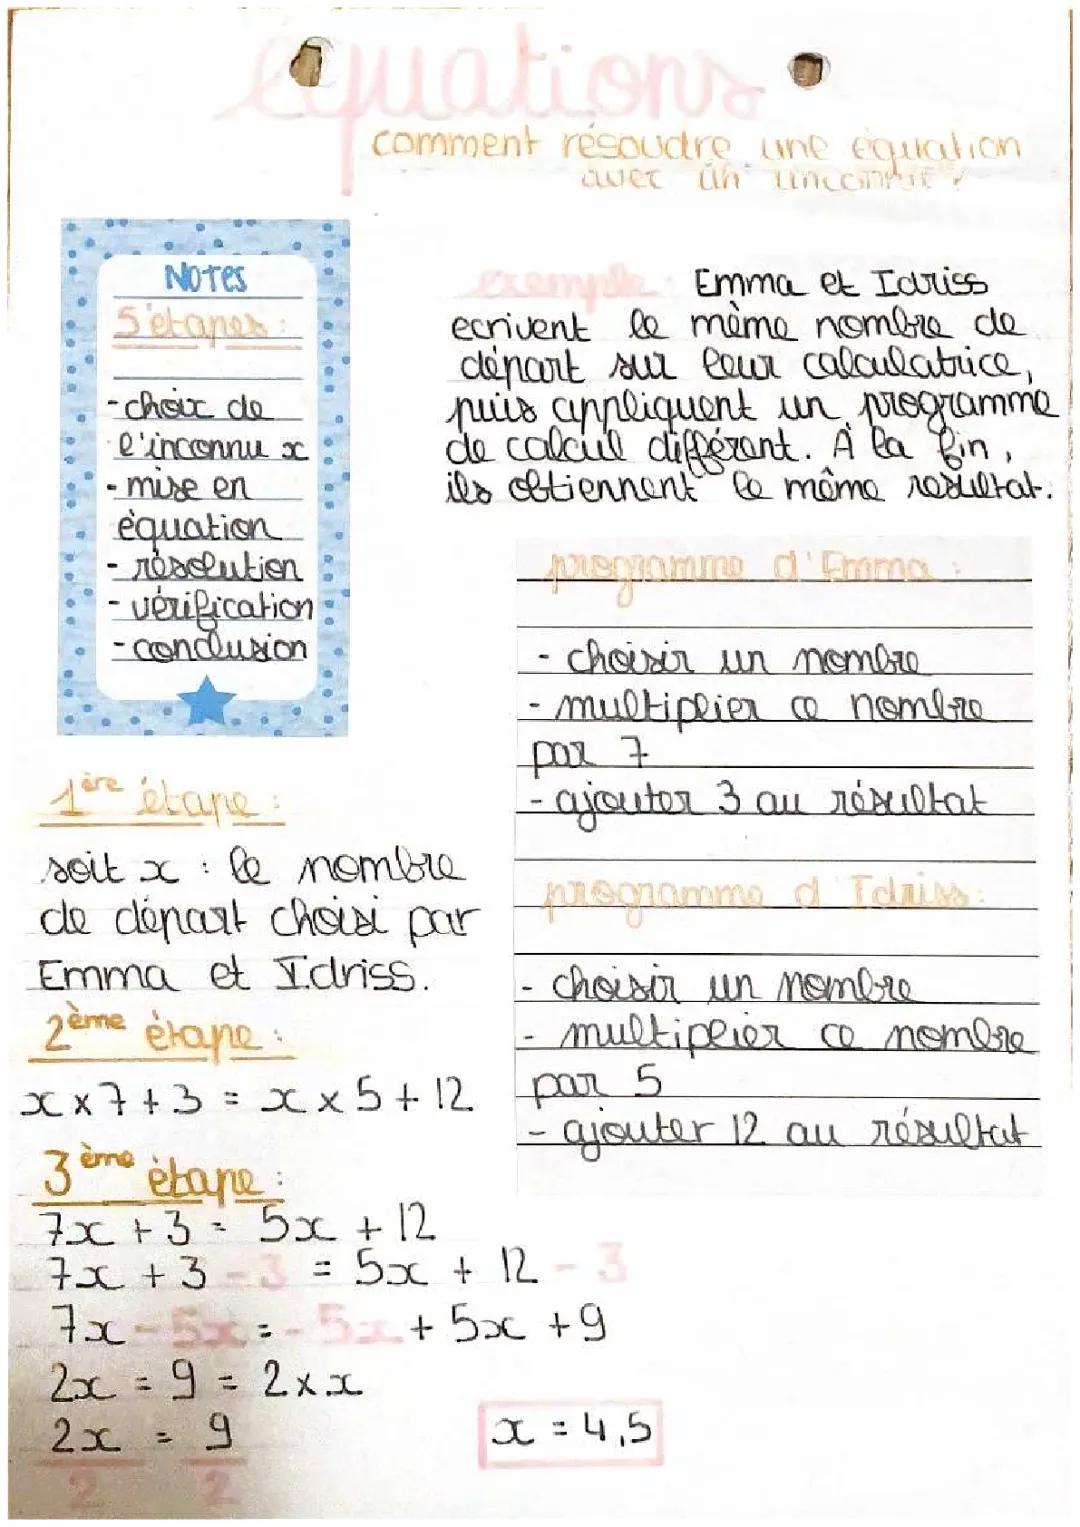 équations
comment résoudre une équation
avec un inconnue ?
NOTES
5 étapes :
- choix de
l'inconnu x
- mise en
équation
- résolution
- vérification
- conclusion
exemple : Emma et Idriss
ecrivent le même nombre de
départ sur leur calculatrice,
puis appliquent un programme
de calcul différent. À la fin,
ils obtiennent le même resultat.
programme d'Emma :
- choisir un nombre
- multiplier ce nombre
par 7
- ajouter 3 au résultat
programme d Idriss :
- choisir un nombre
- multiplier ce nombre
par 5
- ajouter 12 au résultat
1ère étape :
soit x : le nombre
de départ choisi par
Emma et Idriss.
2ème étape :
x x 7 + 3 = x x 5 + 12
3ème étape :
7x + 3 = 5x + 12
7x + 3 - 3 = 5x + 12 - 3
7x - 5x = - 5x + 5x + 9
2x = 9 = 2 x x
2x = 9
2 2
x = 4,5